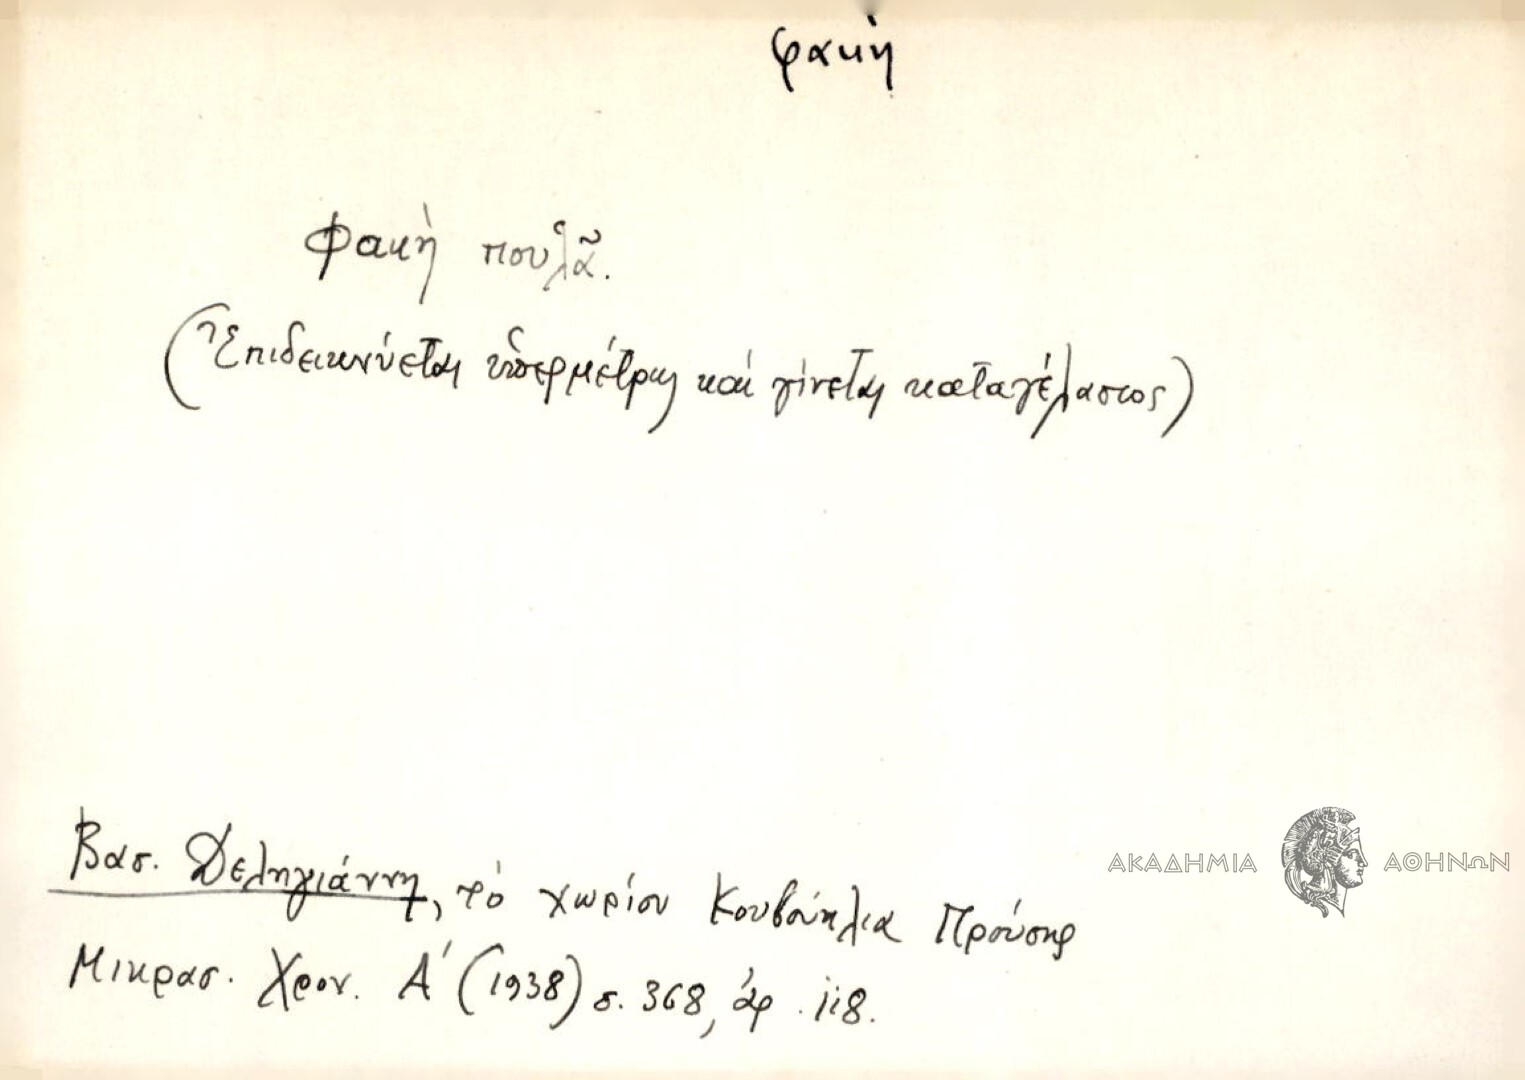 φακή
Φακὴ πουλᾶ.
(Ἐπιδεικνύεται ὑπερμέτρως καὶ γίνεται καταγέλαστος)
ΑΚΑΔΗΜΙΑ ΑΘΗΝΩΝ
Βασ. Δεληγιάννη, τὸ χωρίον Κουβούκλια Προύσης
Μικρασ. Χρον. Α΄ (1938) σ. 368, ἀρ. 118.